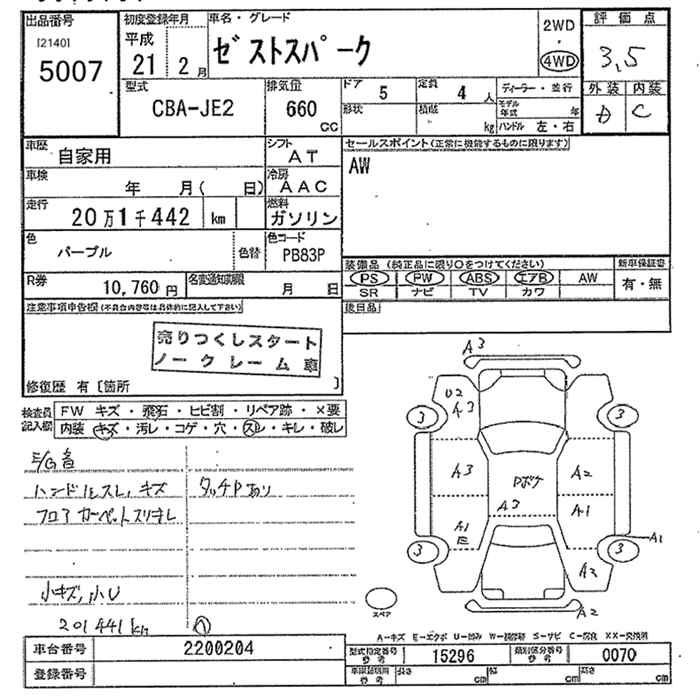 出品番号
[2140]
5007
初度登録年月
平成
21 2月
車名・グレード
ゼストスパーク
2WD
4WD
評価点
3,5
外装 内装
D C
型式
CBA-JE2
排気量
660
CC
ドア 5
定員 4人
形状
積載
kg
ディーラー・並行
モデル年式 年
ハンドル 左・右
車歴
自家用
シフト
AT
セールスポイント(正常に機能するものに限ります)
AW
車検
年 月( 日)
冷房
AAC
走行
20万1千442 km
燃料
ガソリン
色
パープル
色替
色コード
PB83P
装備品(純正品に限り○をつけてください)
新車保証書
PS PW ABS エアB AW
有・無
SR ナビ TV カワ
R券
10,760円
名変通知期限
月 日
後日品
注意事項申告欄(不具合内容等は具体的に記入して下さい)
売りつくしスタート
ノークレーム車
修復歴 有〔箇所 〕
検査員
記入欄
FW キズ・飛石・ヒビ割・リペア跡・×要
内装 キズ・汚レ・コゲ・穴・スレ・キレ・破レ
E/G音
ハンドルスレ,キズ
タッチPあり
フロアカーペットスリキレ
小キズ,小U
201441km
A3
U2
A3
3
3
A3
Pボケ
A2
A2
A1
E
A1
A1
3
3
A2
A2
スペア
A-キズ E-エクボ U-凹み W-補修跡 S-サビ C-腐食 XX-交換済
車台番号
2200204
登録番号
型式指定番号
参考
15296
類別区分番号
参考
0070
車検証期用
参考
長さ cm
幅 cm
高さ cm